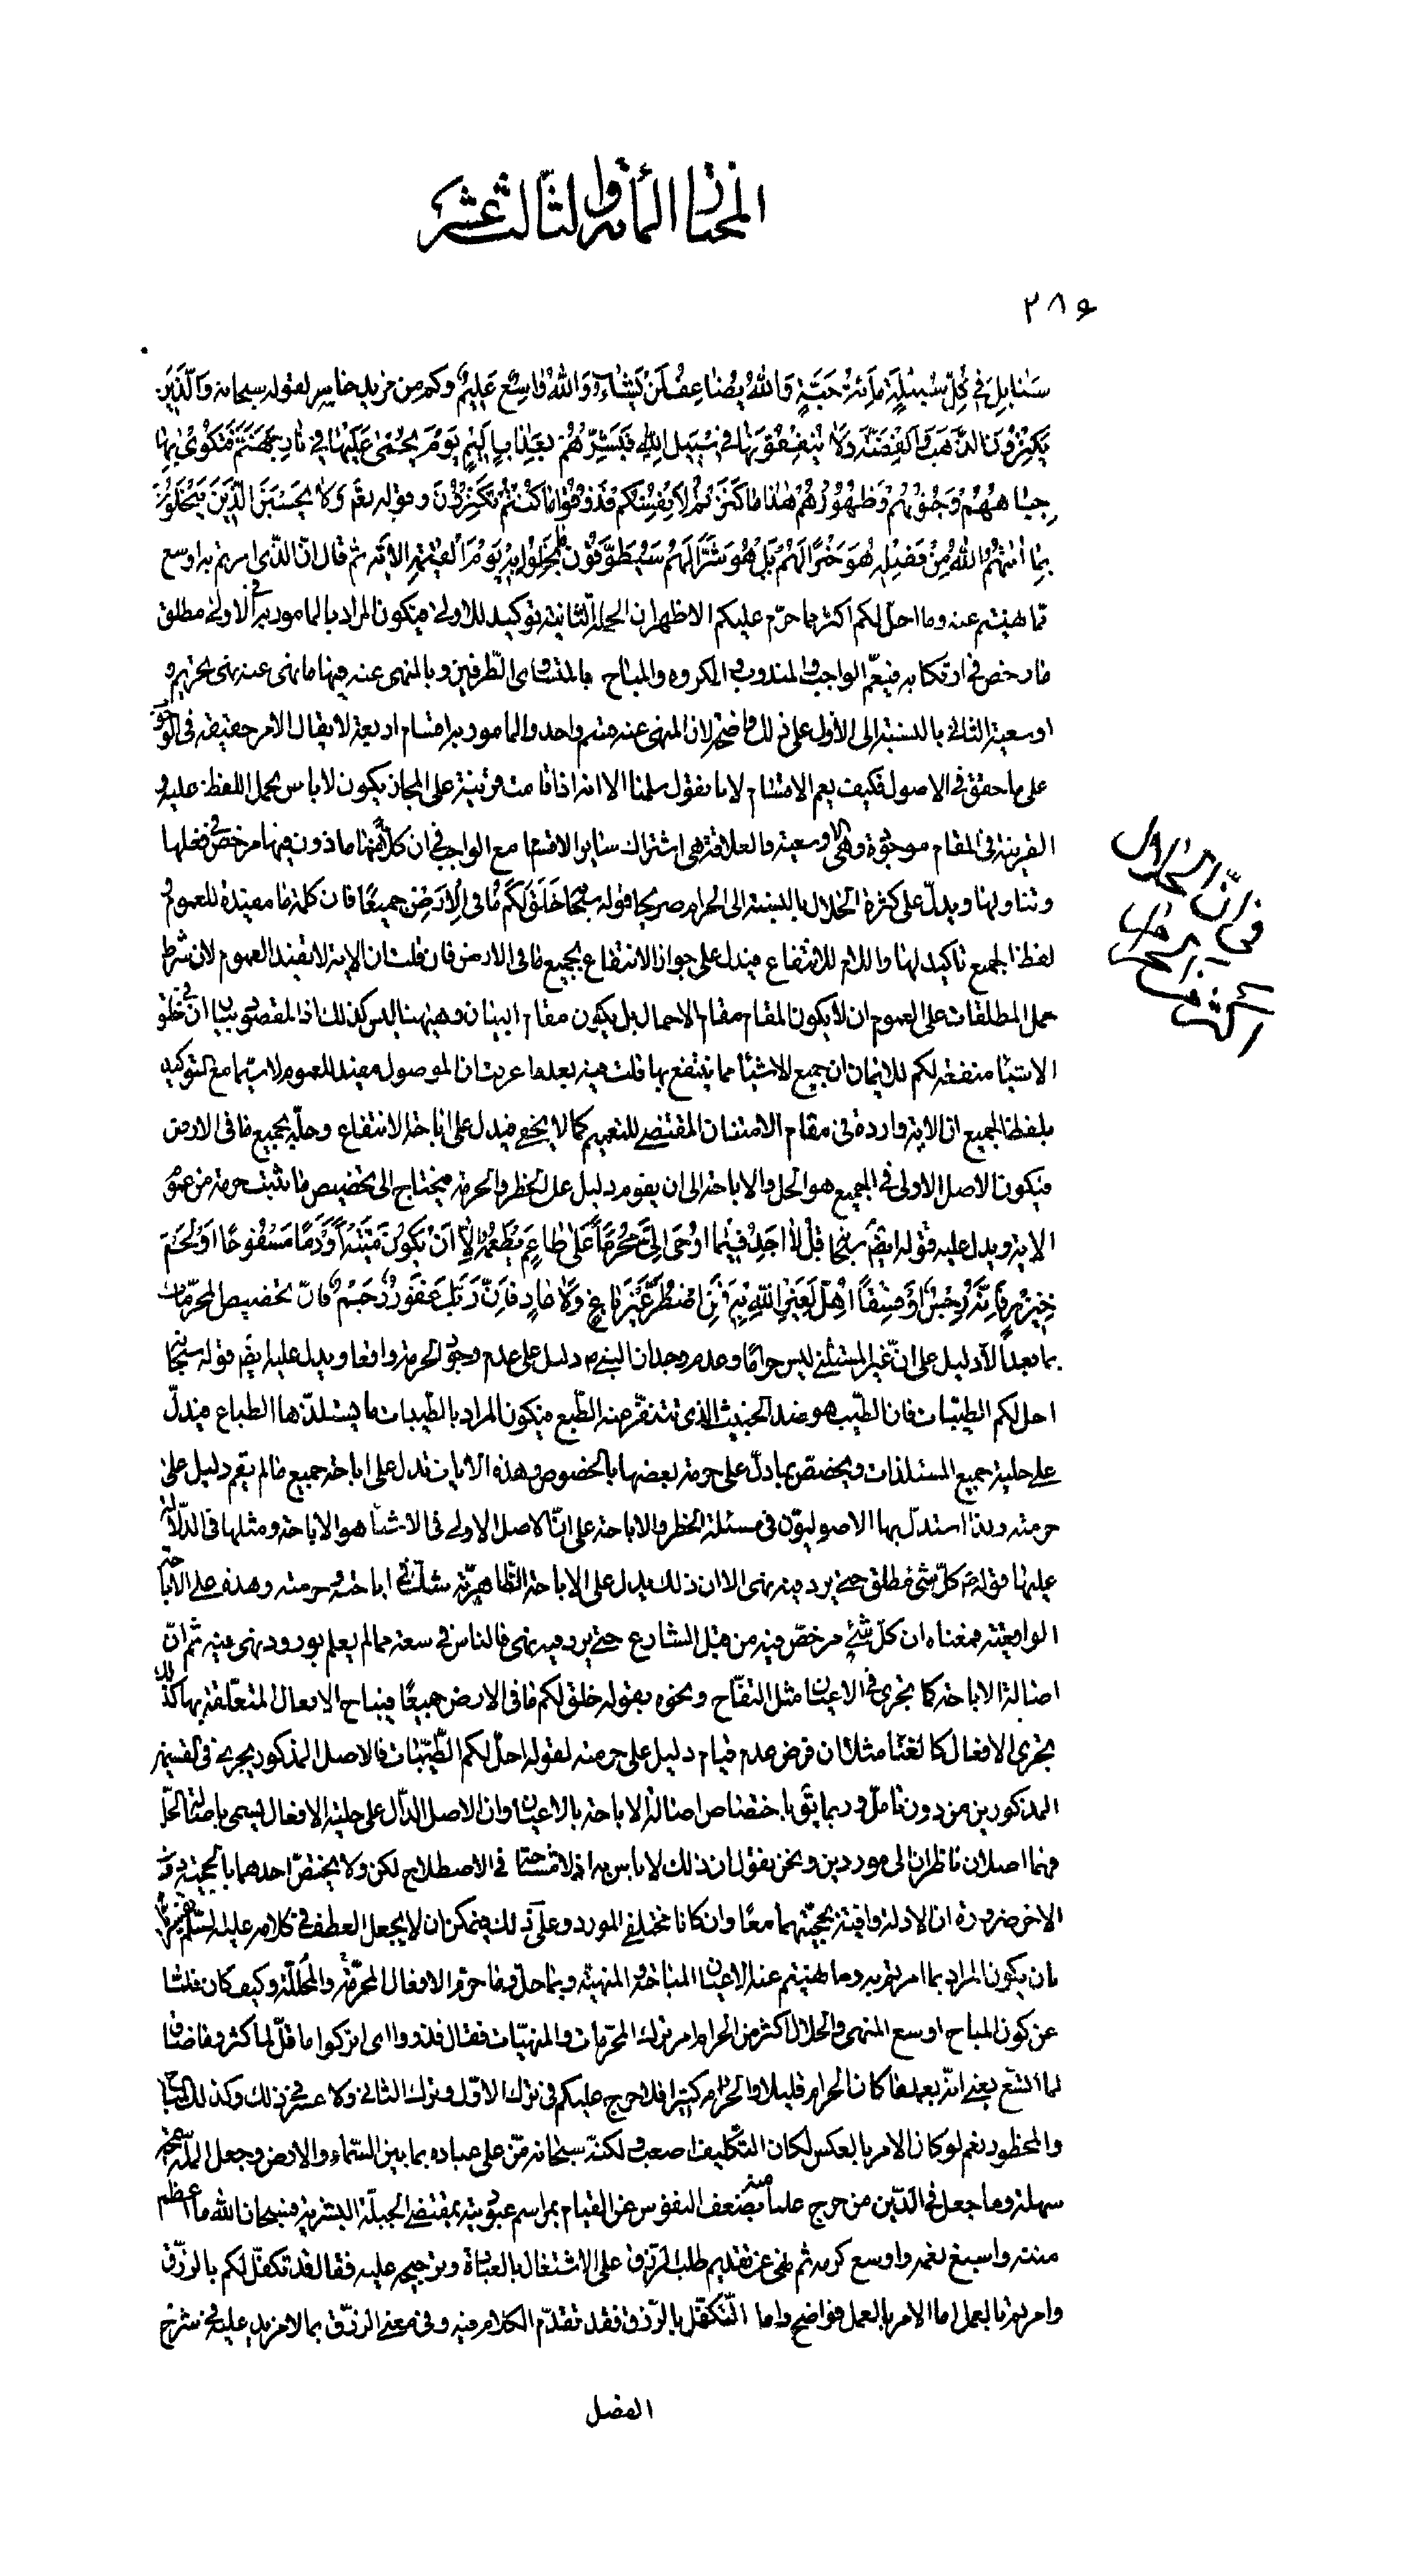 المختار المأة والثالث عشر
۲۸۶
سَنابِلَ فِي كُلِّ سُنْبُلَةٍ مِائَةُ حَبَّةٍ وَاللهُ يُضاعِفُ لِمَنْ يَشاءُ وَاللهُ واسِعٌ عَلِيمٌ وكم من مزيد خاسر لقوله سبحانه وَالَّذِينَ
يَكْنِزُونَ الذَّهَبَ وَالْفِضَّةَ وَلا يُنْفِقُونَها فِي سَبِيلِ اللهِ فَبَشِّرْهُمْ بِعَذابٍ أَلِيمٍ يَوْمَ يُحْمى عَلَيْها فِي نارِ جَهَنَّمَ فَتُكْوى بِها
جِباهُهُمْ وَجُنُوبُهُمْ وَظُهُورُهُمْ هذا ما كَنَزْتُمْ لِأَنْفُسِكُمْ فَذُوقُوا ما كُنْتُمْ تَكْنِزُونَ وقوله تعم وَلا يَحْسَبَنَّ الَّذِينَ يَبْخَلُونَ
بِما آتاهُمُ اللهُ مِنْ فَضْلِهِ هُوَ خَيْراً لَهُمْ بَلْ هُوَ شَرٌّ لَهُمْ سَيُطَوَّقُونَ ما بَخِلُوا بِهِ يَوْمَ الْقِيمَةِ الآية ثم قال انّ الذّى امرتم به اوسع
مما نهيتم عنه وما احلّ لكم اكثر مما حرّم عليكم الاظهر ان الجملة الثانية توكيد للاولى فيكون المراد بالمامور به فى الاولى مطلق
ما رخص فى ارتكابه فيعمّ الواجب والمندوب والمكروه والمباح بالمتساوى الطّرفين وبالمنهى عنه فيها ما نهى عنه نهى تحريم و
اوسعية الثانى بالنسبة الى الأول على ذلك واضحة لان المنهى عنه قسم واحد والمامور به اقسام اربعة لا يقال الامر حقيقة فى الوجوب
على ما حقق فى الاصول فكيف يعم الاقسام لانا نقول سلمنا الا انه اذا قامت قرينة على المجاز يكون لا باس بحمل اللفظ عليه و
القرينة فى المقام موجودة وهى الاوسعية والعلاقة هى اشتراك ساير الاقسام مع الواجب فى ان كلا منها ماذون فيها مرخص فى فعلها
وتناولها ويدلّ على كثرة الحلال بالنسبة الى الحرام صريحا قوله سبحانه خَلَقَ لَكُمْ ما فِى الْأَرْضِ جَمِيعاً فان كلمة ما مفيدة للعموم و
لفظ الجميع تاكيد لها واللام للانتفاع فيدل على جواز الانتفاع بجميع ما فى الارض فان قلت ان الاية لا تفيد العموم لان شرط
حمل المطلقات على العموم ان لا يكون المقام مقام الاجمال بل يكون مقام البيان وهيهنا ليس كذلك اذ المقصود بيان ان فى خلق
الاشياء منفعة لكم لا بيان ان جميع الاشياء مما ينتفع بها قلت فيه بعد ما عرفت ان الموصول مفيد للعموم لا سيّما مع التوكيد
بلفظ الجميع ان الاية واردة فى مقام الامتنان المقتضى للتعميم كما لا يخفى فيدل على اباحة الانتفاع وحليّة جميع ما فى الارض
فيكون الاصل الاولى فى الجميع هو الحل والاباحة الى ان يقوم دليل على الخطر والحرمة فيحتاج الى تخصيص ما ثبت حرمته من عموم
الاية ويدل عليه قوله ايضم سبحانه قُلْ لا أَجِدُ فِيما أُوحِىَ إِلَىَّ مُحَرَّماً عَلى طاعِمٍ يَطْعَمُهُ إِلّا أَنْ يَكُونَ مَيْتَةً أَوْ دَماً مَسْفُوحاً أَوْ لَحْمَ
خِنْزِيرٍ فَإِنَّهُ رِجْسٌ أَوْ فِسْقاً أُهِلَّ لِغَيْرِ اللهِ بِهِ فَمَنِ اضْطُرَّ غَيْرَ باغٍ وَلا عادٍ فَإِنَّ رَبَّكَ غَفُورٌ رَحِيمٌ فانّ تخصيص المحرّمات
بما بعد الّا دليل على انّ غير المستثنى ليس حراما وعدم وجدان النبىّ دليل على عدم وجود الحرمة واقعا ويدل عليه ايضم قوله سبحانه
احل لكم الطيّبات فان الطّيب هو ضد الخبيث الذى تتنفّر عنه الطّبع فيكون المراد بالطّيبات ما يستلذّها الطباع فيدلّ
على حلية جميع المستلذات ويخصّص بما دلّ على حرمة بعضها بالخصوص وهذه الايات تدل على اباحة جميع ما لم يقم دليل على
حرمته وبها استدلّ بها الاصوليّون فى مسئلة الحظر والاباحة على انّ الاصل الاولى فى الاشياء هو الاباحة ومثلها فى الدّلالة
عليها قوله كلّ شىء مطلق حتّى يرد فيه نهى الا ان ذلك يدل على الاباحة الظّاهريّة شكّ فى اباحته وحرمته وهذه على الاباحة
الواقعيّة فمعناه ان كلّ شىء مرخّص فيه من قبل الشارع حتى يرد فيه نهى فالناس فى سعة مما لم يعلم بورود نهى فيه ثم انّ
اصالة الاباحة كما تجرى فى الاعيان مثل التفّاح ونحوه بقوله خلق لكم ما فى الارض جميعاً فيباح الافعال المتعلّقة بها كذلك
يجرى الافعال كالغناء مثلا ان فرض عدم قيام دليل على حرمته لقوله احلّ لكم الطّيّبات فالاصل المذكور يجرى فى القسمين
المذكورين من دون تامّل وربما يق باختصاص اصالة الاباحة بالاعيان وان الاصل الدّال على حلية الافعال يسمى باصالة الحلّ
فهما اصلان ناظران الى موردين ونحن نقول ان ذلك لا باس به اذ لا مشاحة فى الاصطلاح لكن ولا يختصّ احدهما بالحجية دون
الاخر ضرورة ان الادلة وافية بحجيّتهما معا وان كانا مختلفى المورد وعلى ذلك فيمكن ان لا يجعل العطف فى كلامه عليه السّلام
بان يكون المراد بما امرتم به وما نهيتم عنه الاعيان المباحة والمنهيّة وبما حلّ وما حرم الافعال المحرّمة والمحلّلة وكيف كان فلمّا
عن كون المباح اوسع المنهى والحلال اكثر من الحرام امر بترك المحرّمات والمنهيّات فقال فذروا اى اتركوا ما قلّ لما كثر وما ضاق
لما اتّسع يعنى انّه بعد ما كان الحرام قليلا والحلال كثيرا فلا حرج عليكم فى ترك الاوّل وترك الثانى ولا عسر فى ذلك وكذلك المباح
والمحظور نعم لو كان الامر بالعكس لكان التّكليف اصعب ولكنّه سبحانه منّ على عباده بما بين السّماء والارض وجعل الملّة سمحة
سهلة وما جعل فى الدّين من حرج علما منه بضعف النفوس عن القيام بمراسم عبوديته بمقتضى الجبلّة البشرية فسبحان الله ما اعظم
مننه واسبغ نعمه واوسع كرمه ثم نهى عن تقديم طلب الرّزق على الاشتغال بالعبادة وترجيحه عليه فقال قد تكفّل لكم بالرزّق
وامرتم بالعمل اما الامر بالعمل فواضح واما التّكفّل بالرّزق فقد تقدّم الكلام فيه وفى معنى الرزّق بما لا مزيد عليه فى شرح
الفصل
فى انّ الحلال
اكثر من الحرام